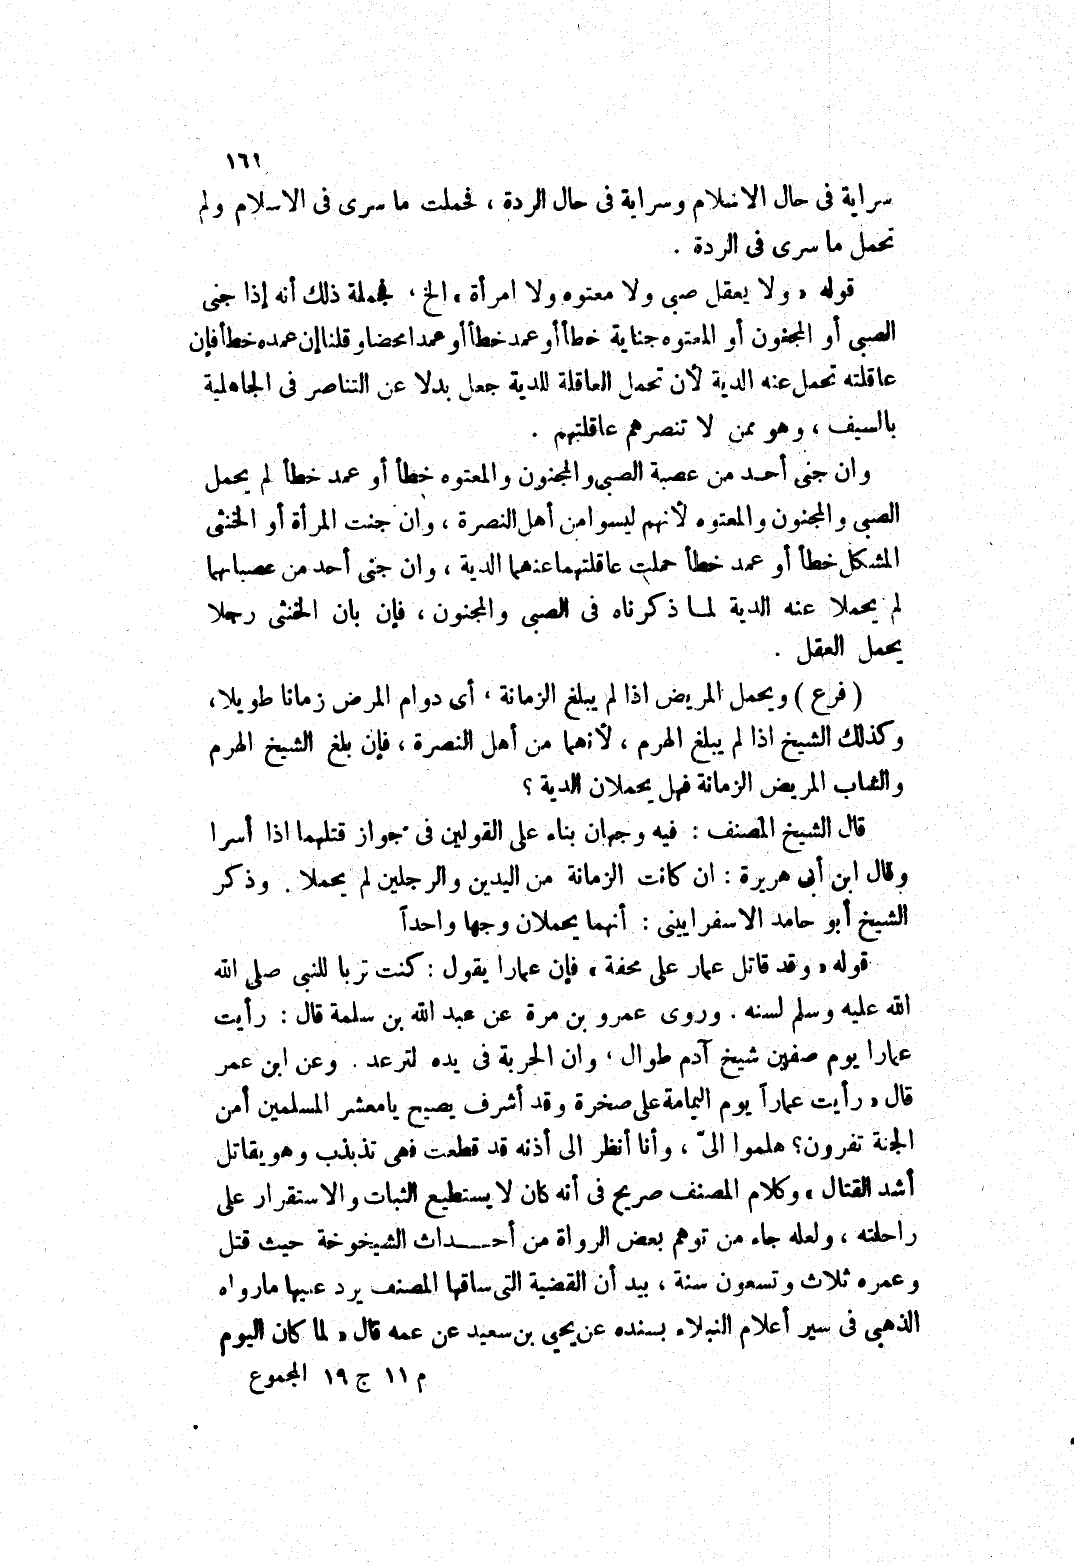 ١٦١
سراية فى حال الاسلام وسراية فى حال الردة ، فحملت ما سرى فى الاسلام ولم
تحمل ما سرى فى الردة .
قوله « ولا يعقل صبى ولا معتوه ولا امرأة » الخ ، فجملة ذلك أنه إذا جنى
الصبى أو المجنون أو المعتوه جناية خطأ أو عمد خطأ أو عمدا محضا وقلنا إن عمده خطأ فإن
عاقلته تحمل عنه الدية لأن تحمل العاقلة للدية جعل بدلا عن التناصر فى الجاهلية
بالسيف ، وهو ممن لا تنصرهم عاقلتهم .
وان جنى أحد من عصبة الصبى والمجنون والمعتوه خطأ أو عمد خطأ لم يحمل
الصبى والمجنون والمعتوه لأنهم ليسوا من أهل النصرة ، وان جنت المرأة أو الخنثى
المشكل خطأ أو عمد خطأ حملت عاقلتهما عنهما الدية ، وان جنى أحد من عصباتهما
لم يحملا عنه الدية لما ذكرناه فى الصبى والمجنون ، فإن بان الخنثى رجلا
يحمل العقل .
( فرع ) ويحمل المريض اذا لم يبلغ الزمانة ، أى دوام المرض زمانا طويلا ،
وكذلك الشيخ اذا لم يبلغ الهرم ، لأنهما من أهل النصرة ، فإن بلغ الشيخ الهرم
والشاب المريض الزمانة فهل يحملان الدية ؟
قال الشيخ المصنف : فيه وجهان بناء على القولين فى جواز قتلهما اذا أسرا
وقال ابن أبى هريرة : ان كانت الزمانة من اليدين والرجلين لم يحملا . وذكر
الشيخ أبو حامد الاسفرايينى : أنهما يحملان وجها واحداً
قوله « وقد قاتل عمار على محفة » فإن عمارا يقول : كنت تربا للنبى صلى الله
الله عليه وسلم لسنه . وروى عمرو بن مرة عن عبد الله بن سلمة قال : رأيت
عمارا يوم صفين شيخ آدم طوال ، وان الحربة فى يده لترعد . وعن ابن عمر
قال « رأيت عماراً يوم اليمامة على صخرة وقد أشرف يصيح يا معشر المسلمين أمن
الجنة تفرون ؟ هلموا الىّ ، وأنا أنظر الى أذنه قد قطعت فهى تذبذب وهو يقاتل
أشد القتال » وكلام المصنف صريح فى أنه كان لا يستطيع الثبات والاستقرار على
راحلته ، ولعله جاء من توهم بعض الرواة من أحداث الشيخوخة حيث قتل
وعمره ثلاث وتسعون سنة ، بيد أن القضية التى ساقها المصنف يرد عليها مارواه
الذهبى فى سير أعلام النبلاء بسنده عن يحيى بن سعيد عن عمه قال « لما كان اليوم
م ١١ ج ١٩ المجموع